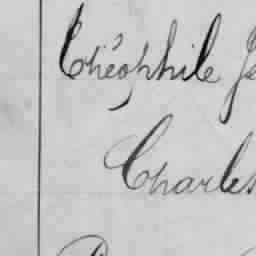 Théophile Je
Charles